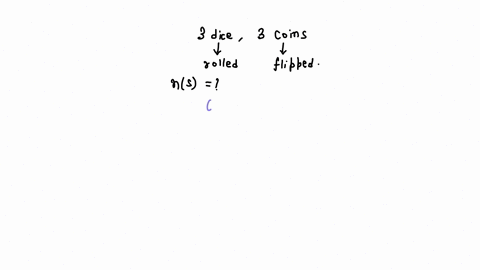 3 dice, 3 coins
↓ ↓
rolled flipped.
n(s) = ?
(